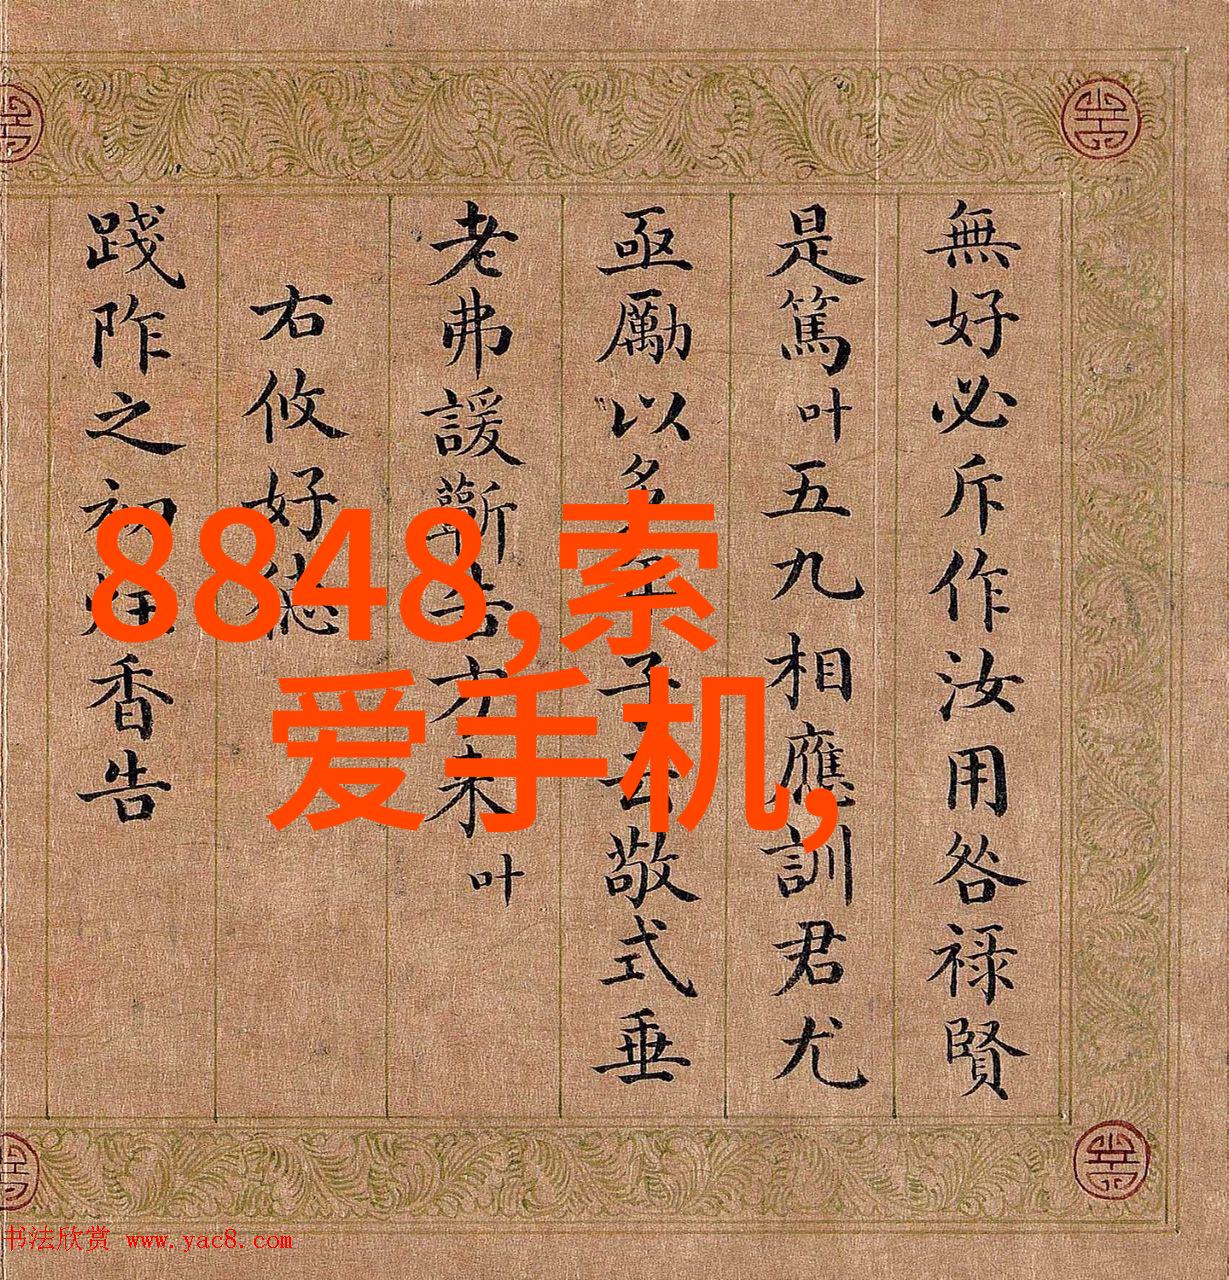 無好必斥作汝用咎禄賢
是篤叶五九相應訓君尤
亟勵以名子敬式垂
老弗諼蘄告方来叶
右攸好德
踐阼之初炷香告
8848,索
爱手机,
书法欣赏 www.yac8.com